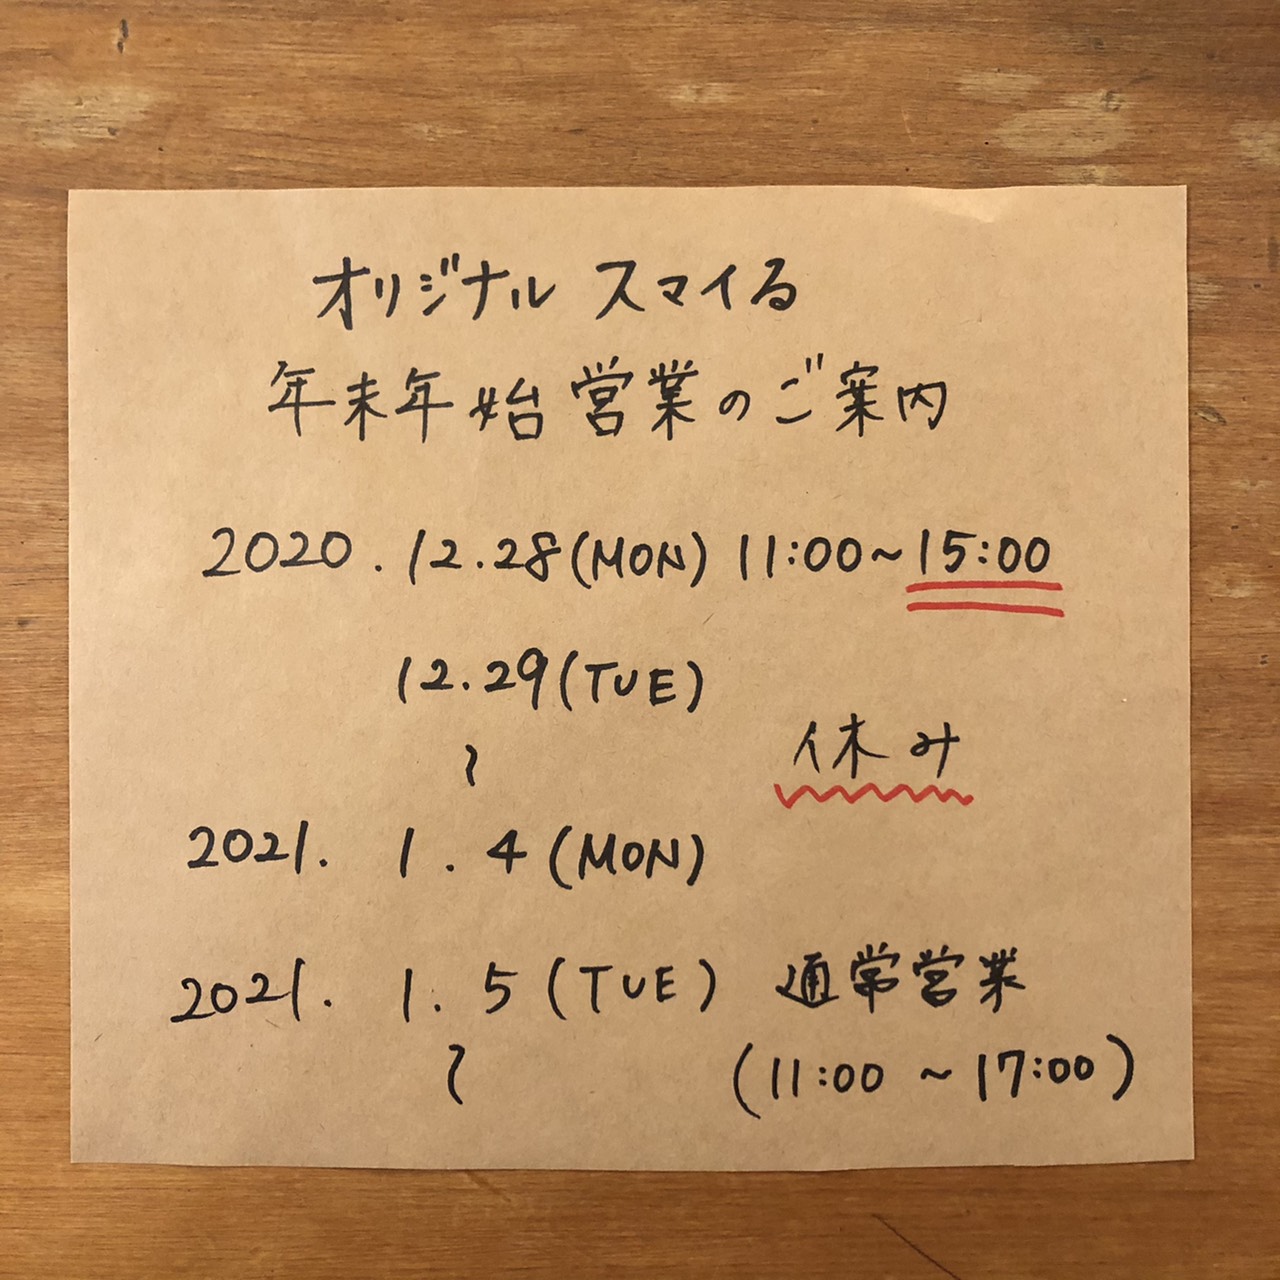 オリジナル スマイる
年末年始営業のご案内
2020.12.28(MON) 11:00~15:00
12.29(TUE)
~
休み
2021. 1.4(MON)
2021. 1.5(TUE) 通常営業
~ (11:00 ~ 17:00)